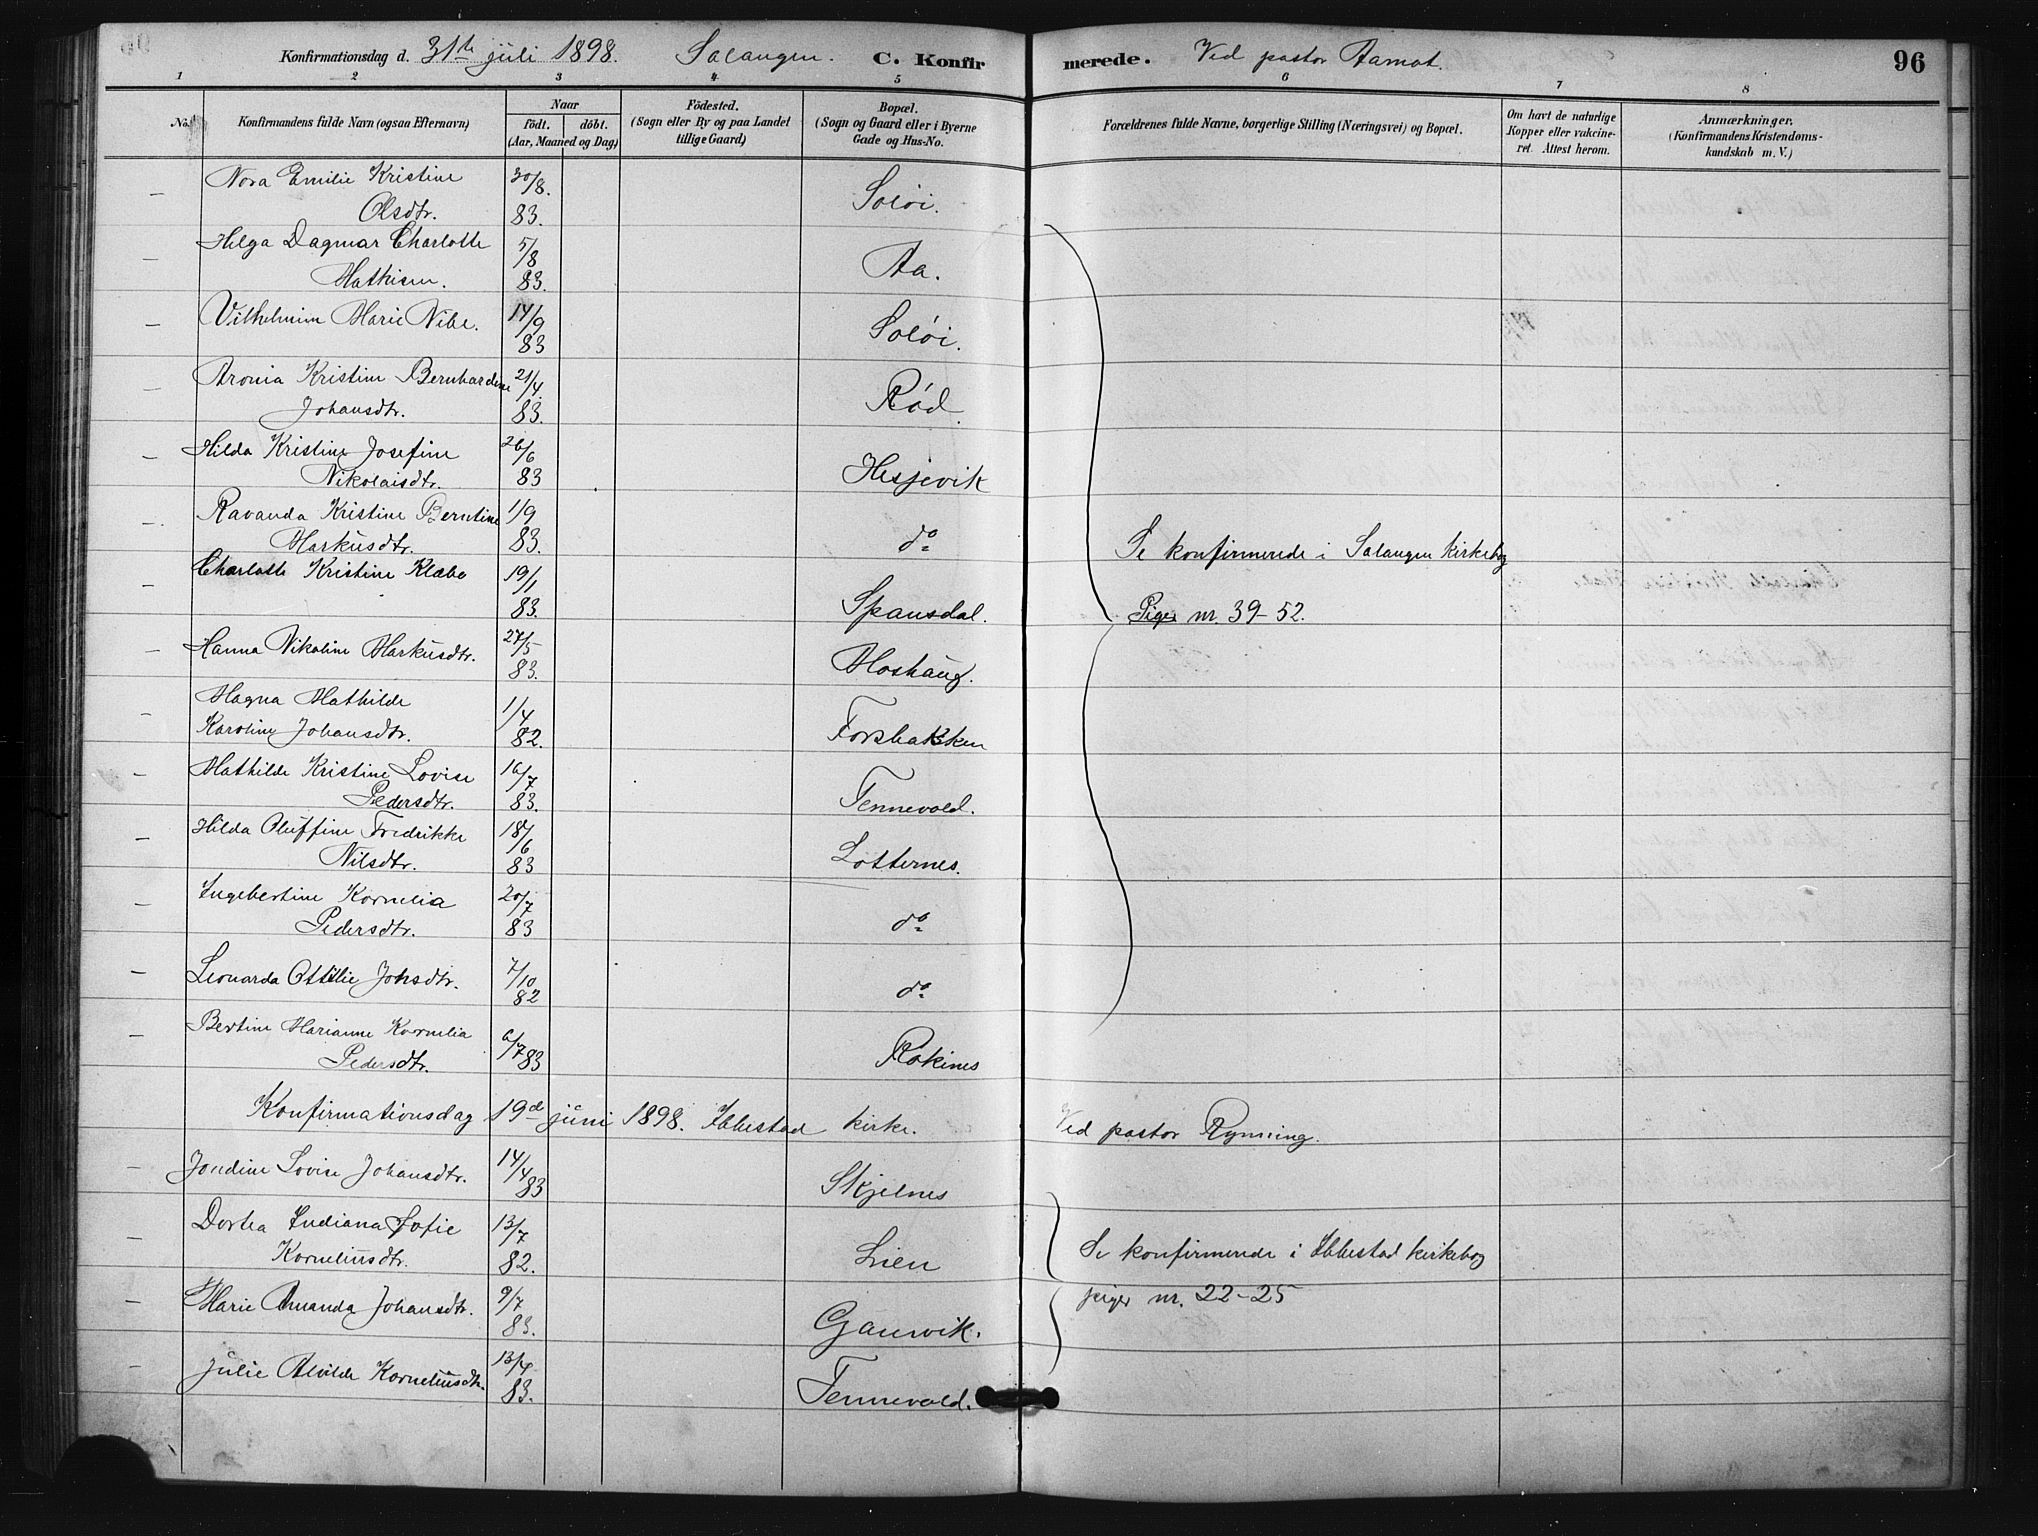 Konfirmationsdag d. 31te juli 1898. Salangen. C. Konfirmerede. Ved pastor Aamot. 96
1 2 3 4 5 6 7 8
No. Konfirmandens fulde Navn (ogsaa Efternavn) Naar født. døbt. (Aar, Maaned og Dag) Födested. (Sogn eller By og paa Landet tillige Gaard) Bopæl. (Sogn og Gaard eller i Byerne Gade og Hus-No. Forældrenes fulde Navne, borgerlige Stilling (Næringsvei) og Bopæl. Om havt de naturlige Kopper eller vakcineret. Attest herom. Anmærkninger. (Konfirmandens Kristendomskundskab m. V.)
– Nora Emilie Kristine 30/8.
Olsdtr. 83. Soløi.
– Helga Dagmar Charlotte 5/8
Mathisen. 83. Aa.
– Vilhelmine Marie Nibe. 14/9
83 Soløi.
– Aronia Kristine Bernhardine 21/4.
Johansdtr. 83. Rød
– Hilda Kristine Josefine 26/6
Nikolaisdtr. 83 Hesjevik
– Ravanda Kristine Berntine 1/9
Markusdtr. 83. do Se konfirmerede i Salangen kirkebog
– Charlotte Kristine Klæbo 19/1
83. Spansdal. Piger nr. 39–52.
– Hanna Nikoline Markusdtr. 27/5
83. Moshaug.
– Magna Mathilde 1/4
Karoline Johansdtr. 82. Forsbakken
– Mathilde Kristine Lovise 16/7
Pedersdtr. 83. Tennevold.
– Hilda Oluffine Fredrikke 18/6
Nilsdtr. 83 Lotternes.
– Ingebertine Kornelia 20/7
Pedersdtr. 83 do
– Leonarda Ottilie Johsdtr. 7/10
82 do
– Bertine Marianne Kornelia 6/7 83
Pedersdtr. Røkenes
Konfirmationsdag 19de juni 1898. Ibbestad kirke. Ved pastor Rynning.
– Jondine Lovise Johansdtr. 14/4 83 Skjelnes
– Dortea Indiana Sofie 13/7
Korneliusdtr. 82. Lien Se konfirmerede i Ibbestad kirkebog
– Marie Amanda Johansdtr. 9/7 piger nr. 22–25
83. Gansvik.
– Julie Alvilde Korneliusdtr. 13/4
83. Tennevold.